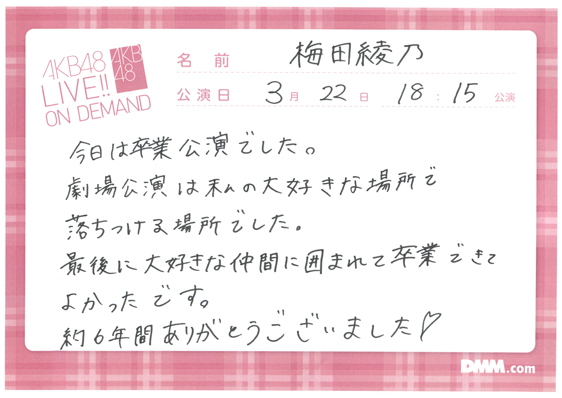 AKB48
LIVE!!
ON DEMAND
AKB
48
名前 梅田綾乃
公演日 3月22日 18:15公演
今日は卒業公演でした。
劇場公演は私の大好きな場所で
落ちつける場所でした。
最後に大好きな仲間に囲まれて卒業できて
よかったです。
約6年間ありがとうございました♡
DMM.com